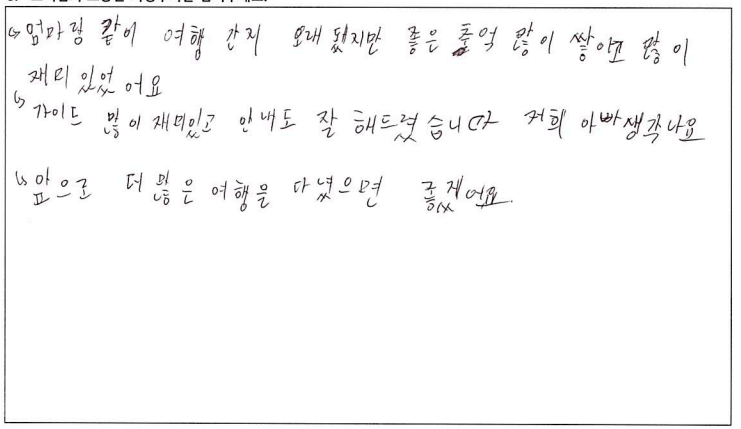 ↳ 엄마랑 같이 여행 간지 오래 됐지만 좋은 추억 많이 쌓이고 많이
재미 있었 어요
↳ 가이드 많이 재미있고 안내도 잘 해드렸습니다 저희 아빠생각나요
↳ 앞으로 더 많은 여행을 다녔으면 좋겠어요.